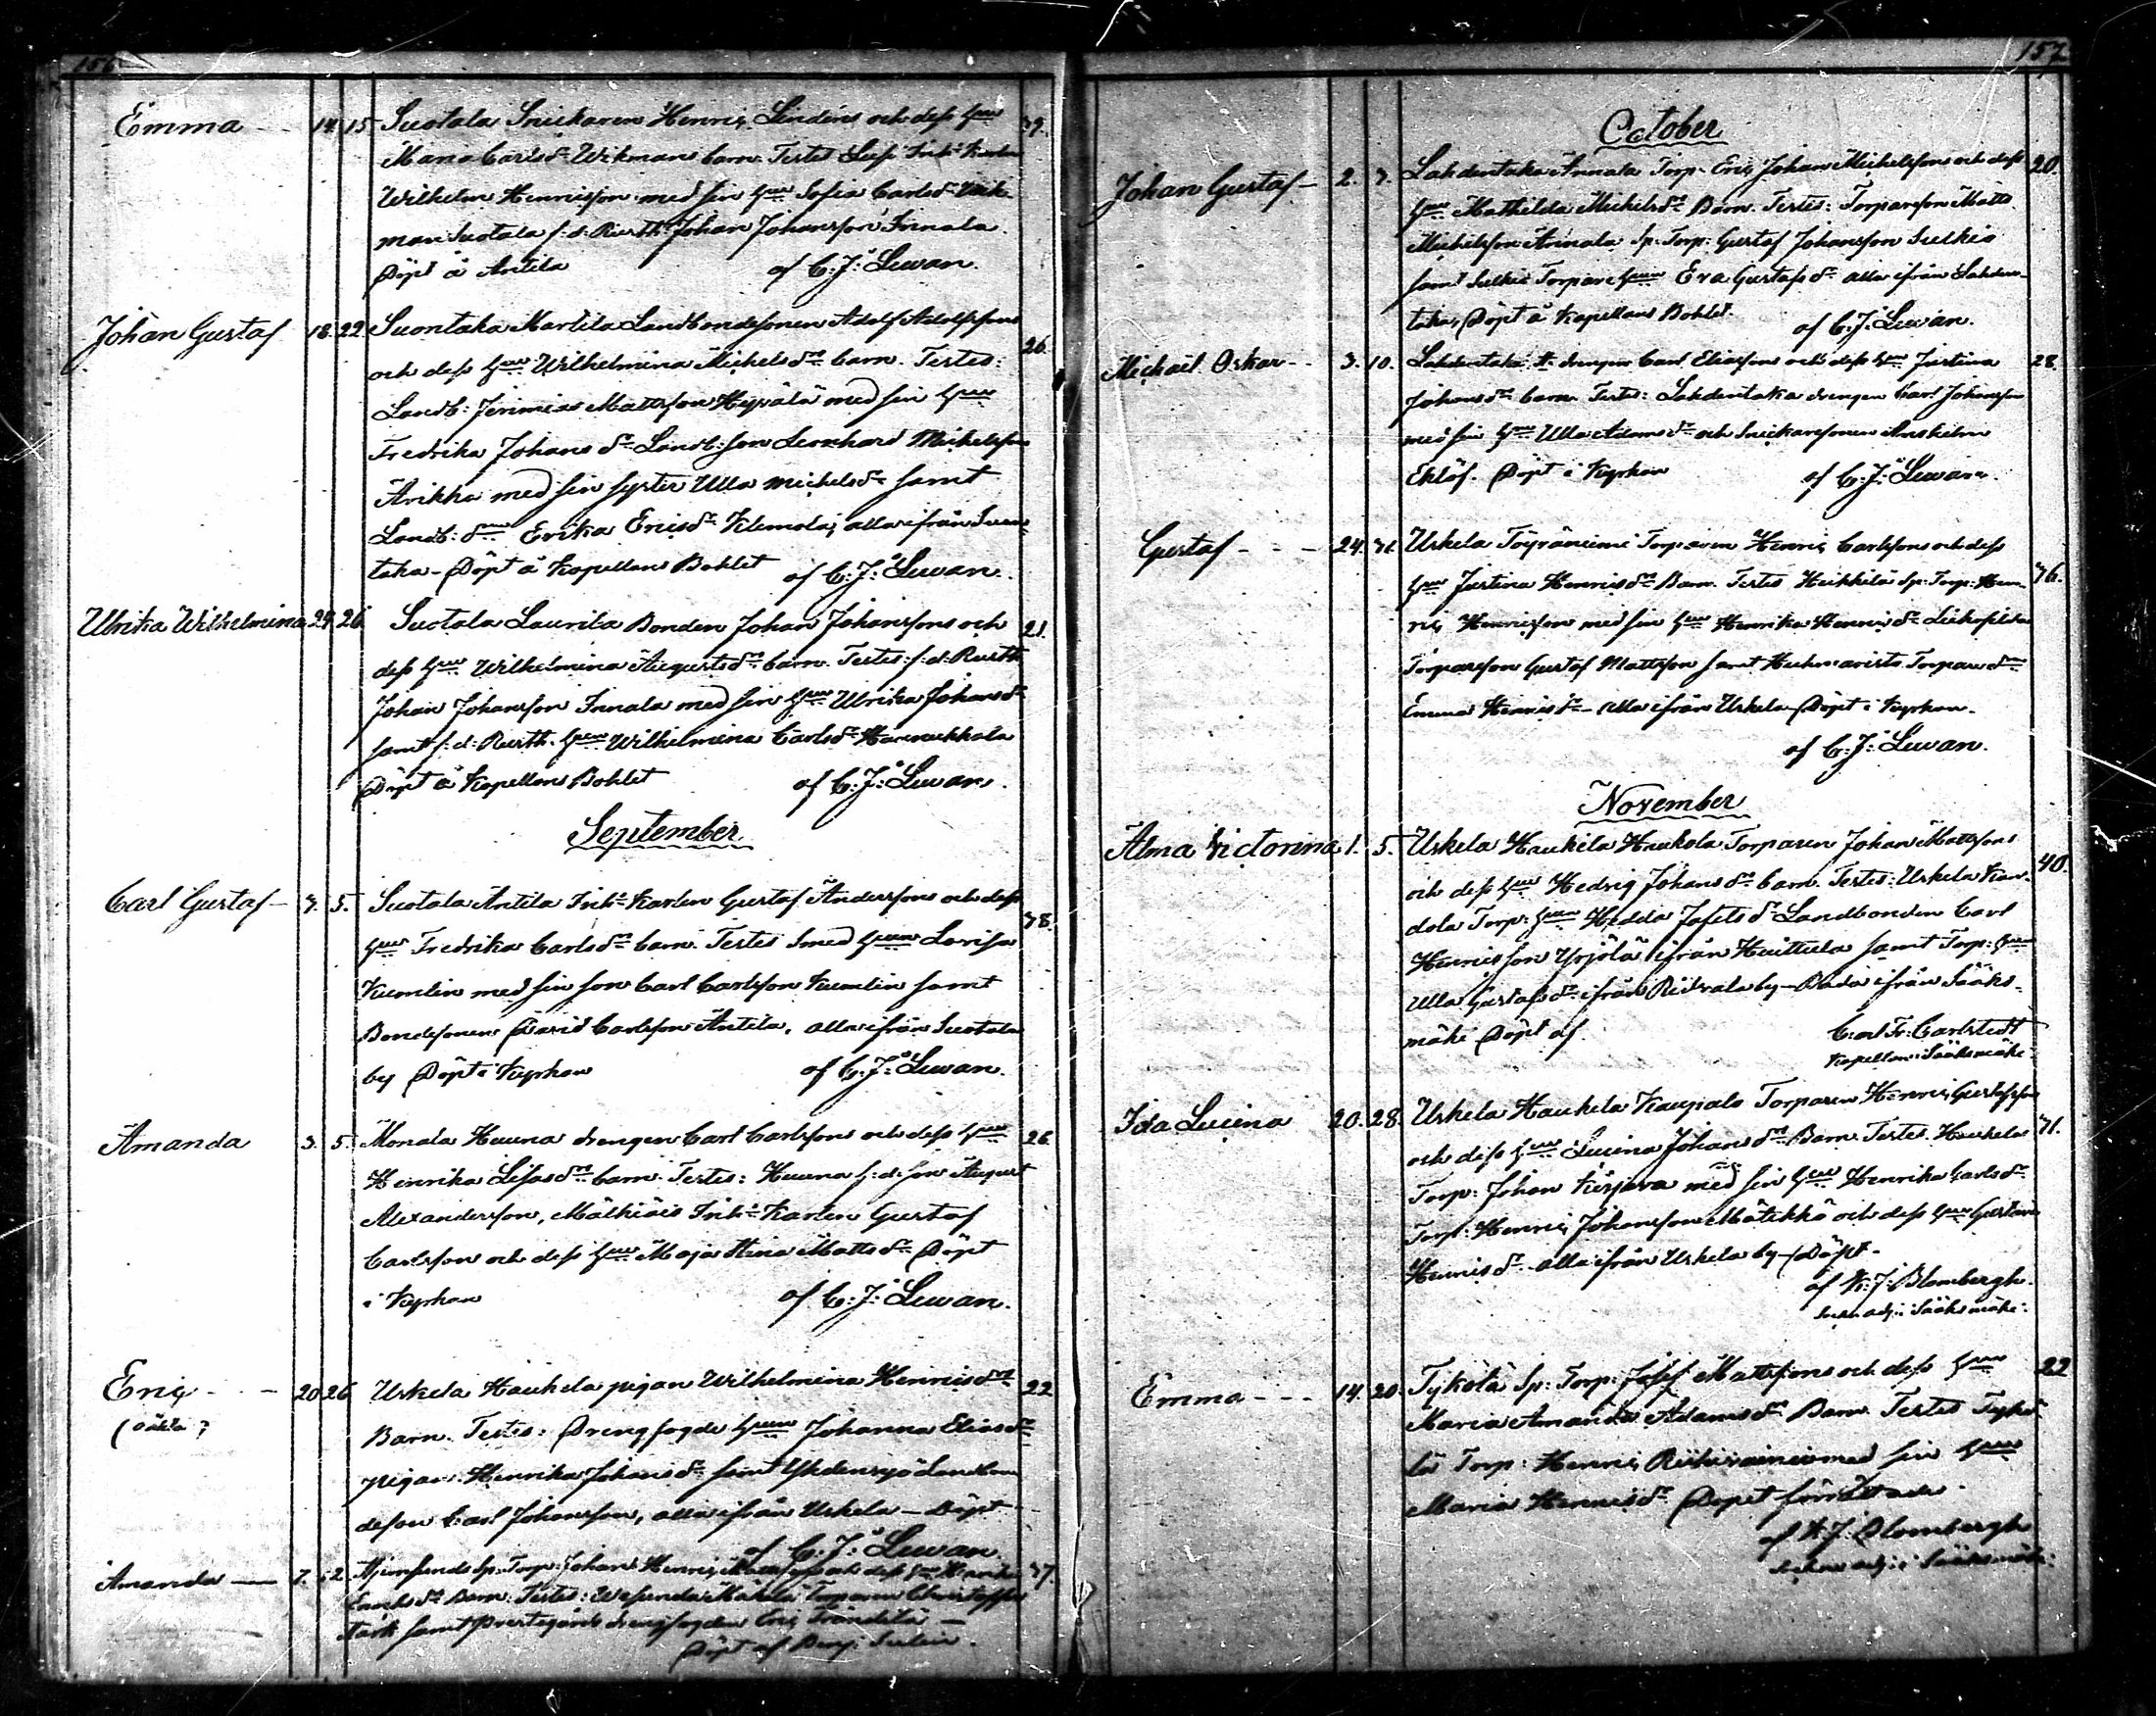 156
Emma 14. 15 Suotala Snickaren Henric Lindéns och dess hu 39.
Maria Carlsd. Wikmans barn. Testes
Wilhelm Henricsson med sin hu Sofia Carlsd. Wik-
man Suotala s:d: Rusth. Johan Johansson Innala.
Döpt å Antila af C:J: Lewan.
Johan Gustaf 18. 22 Suontaka Martila Landbondesonen Adolf Adolfssons 26.
och dess hu Wilhelmina Michelsdr barn. Testes:
Landb: Jerimias Mattsson Hyvälä med sin hu
Fredrika Johansdr Landb: son Leonhard Michelsson
Arikka med sin syster Ulla Michelsdr samt
Landb: dr Erika Ericsdr Klemola, alla ifrån Suon-
taka - Döpt å Kapellans Bohlet af C:J: Lewan.
Ulrika Wilhelmina 24. 26. Suotala Laurila Bonden Johan Johanssons och 21.
dess hu Wilhelmina Augustsdr barn. Testes: s:d: Rusth
Johan Johansson Innala med sin hu Ulrika Johansdr
samt s:d: Rusth. hu Wilhelmina Carlsdr
Döpt å Kapellans Bohlet af C:J: Lewan.
September
Carl Gustaf 3. 5. Suotala Antila Inh: Karlen Gustaf Anderssons och dess 38.
hu Fredrika Carlsdr barn. Testes Smed hu Lovisa
Kumlin med sin son Carl Carlsson Kumlin samt
Bondesonen David Carlsson Antila, alla ifrån Suotala
by Döpt i Kyrkan af C:J: Lewan.
Amanda 3. 5. Monala Huuna drengen Carl Carlssons och dess hu 26.
Henrika Lisasdr barn. Testes: Huuna s:d: son August
Alexandersson, Mälkiäis Inh: Karlen Gustaf
Carlsson och dess hu Maja Stina Mattsdr Döpt
i Kyrkan af C:J: Lewan.
Eric 20 26 Urkela Haukela pigan Wilhelmina Henricsdr 22
(oäkta)
Barn. Testes: Drengfogde hu Johanna Eliasdr
pigan Henrika Johansdr samt Landbon-
deson Carl Johansson, alla ifrån Urkela - Döpt
af C:J: Lewan
Amanda 7. 12. Sp: Torp: Johan Henric och dess hu 37.
dr Barn. Testes: Torparen Christoffer
samt Prestgårds drengfogden Eric
Döpt af
157
October
Johan Gustaf 2. 7. Lahdentaka Annala Torp. Eric Johan Michelssons och dess 20.
hu Mathilda Michelsdr Barn. Testes: Torpareson Matts
Michelsson Annala Sp: Torp: Gustaf Johansson Sulkio
samt Sulkio Torpare hu Eva Gustafsdr alla ifrån Lahden-
taka, Döpt å Kapellans Bohlet. af C:J: Lewan.
Michaël Oskar 3. 10. Lahdentaka drengen Carl Eliassons och dess hu Justina 28.
Johansdr barn. Testes: Lahdentaka drengen Carl Johansson
med sin hu Ulla Adamsdr och Snickaresonen Anshelm
Eklöf. Döpt i Kyrkan af C:J: Lewan.
Gustaf 24. 31. Urkela Töyräniemi Torparen Henric Carlssons och dess
hu Justina Henricsdr Barn. Testes Heikkilä Sp: Torp: Hen- 36.
ric Henricsson med sin hu Henrika Henricsdr
Torpareson Gustaf Mattsson samt Torpare dr
Emma Henricsdr - Alla ifrån Urkela - Döpt i Kyrkan.
af C:J: Lewan.
November
Alma Victorina 1. 5. Urkela Haukela Haukola Torparen Johan Mattssons
och dess hu Hedvig Johansdr barn. Testes: Urkela Kan- 40.
dola Torp: hu Hedda Josefsdr Landbonden Carl
Henricsson Yrjölä ifrån Huittula samt Torp: hu
Ulla Gustafsdr ifrån Ridvala by - Båda ifrån Sääks-
mäki Döpt af Carl Fr: Carlstedt
Kapellan i Sääksmäki.
Ida Lucina 20. 28. Urkela Haukela Kaupala Torparen Henric Gustafsson
och dess hu Lucina Johansdr Barn. Testes. Haukela 31.
Torp: Johan Kirjava med sin hu Henrika Carlsdr
Torp: Henric Johansson Mätikkö och dess hu Gustava
Henricsdr alla ifrån Urkela by - Döpt -
af K: J: Blombergh.
Sockn adj: i Sääksmäki.
Emma 14. 20. Tykölä Sp: Torp: Josef Mattssons och dess hu 22
Maria Amanda Adamsdr Barn. Testes Tykö-
lä Torp: Henric med sin hu
Maria Henricsdr Dopet förrättade.
af K: J: Blombergh
Sockne adj: i Sääksmäki.